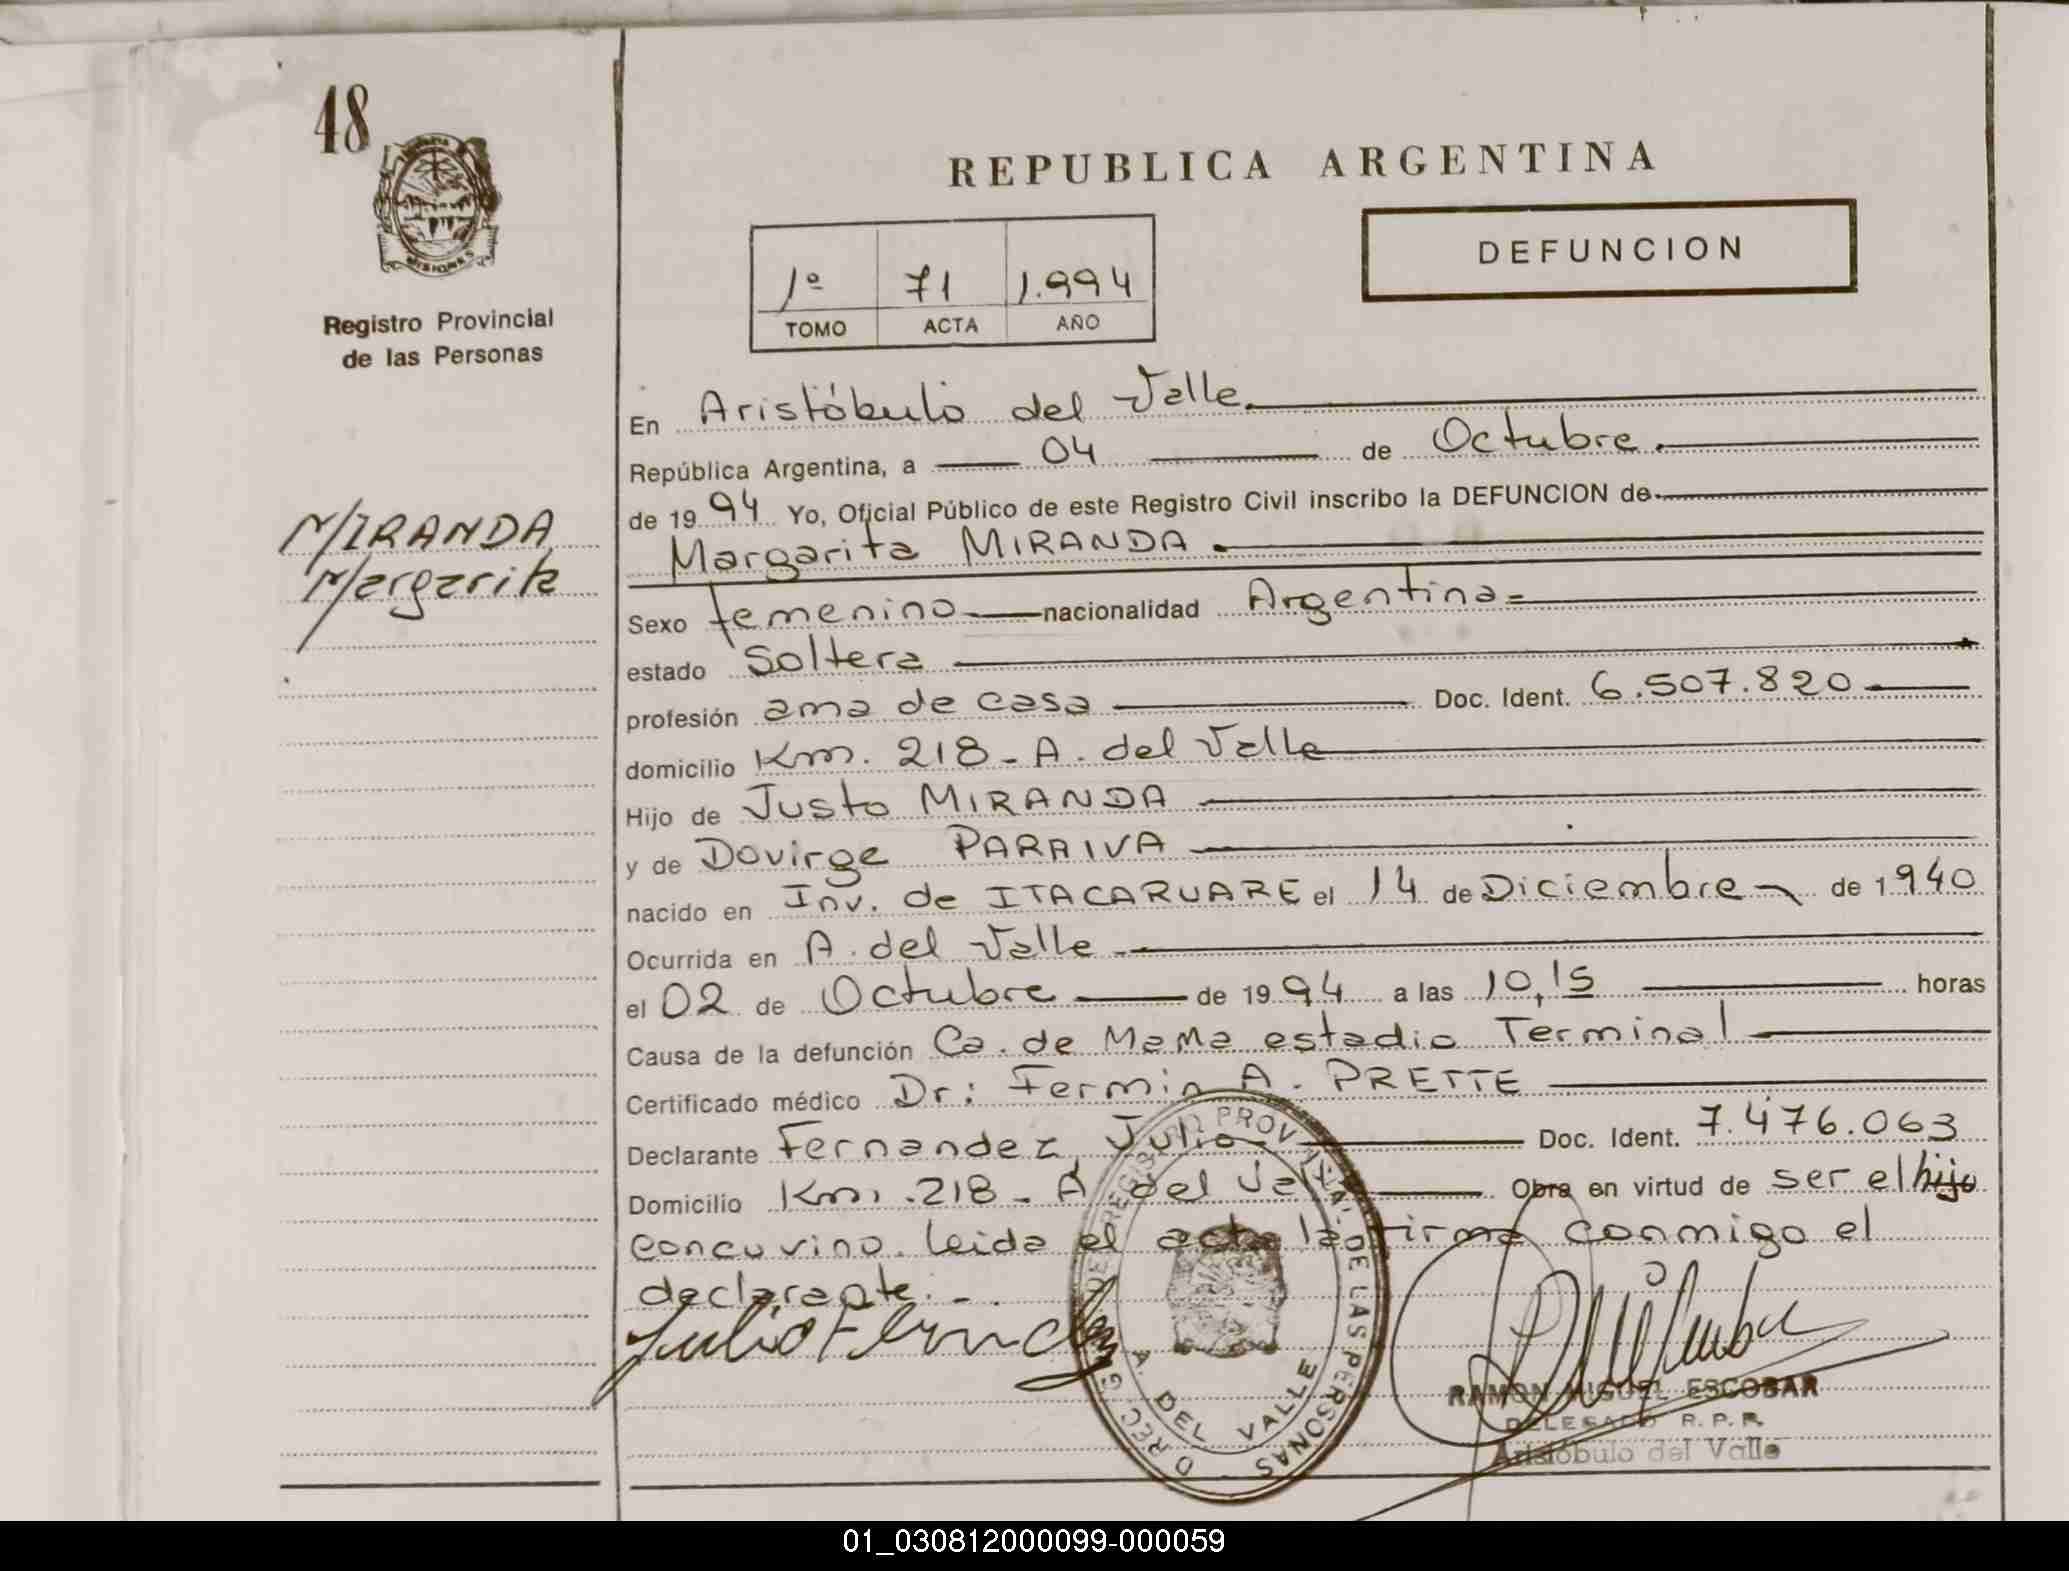 48
MISIONES
Registro Provincial
de las Personas
MIRANDA
Margarita
REPUBLICA ARGENTINA
1º 71 1.994
TOMO ACTA AÑO
DEFUNCION
En Aristóbulo del Valle.
República Argentina, a 04 de Octubre.
de 1994 Yo, Oficial Público de este Registro Civil inscribo la DEFUNCION de
Margarita MIRANDA
Sexo femenino nacionalidad Argentina
estado Soltera
profesión ama de casa Doc. Ident. 6.507.820
domicilio Km. 218 - A. del Valle
Hijo de Justo MIRANDA
y de Dovirge PARAIVA
nacido en Inv. de ITACARUARE el 14 de Diciembre de 1940
Ocurrida en A. del Valle
el 02 de Octubre de 1994 a las 10,15 horas
Causa de la defunción Ca. de Mama estadio Terminal
Certificado médico Dr: Fermin A. PRETTE
Declarante Fernandez, Julio Doc. Ident. 7.476.063
Domicilio Km. 218 - A. del Valle Obra en virtud de ser el hijo
concuvino. leida el acta la firma conmigo el
declarante. -.
Julio Fernandez
A. DEL VALLE
RAMON MIGUEL ESCOBAR
DELEGADO R.P.P.
Aristóbulo del Valle
01_030812000099-000059